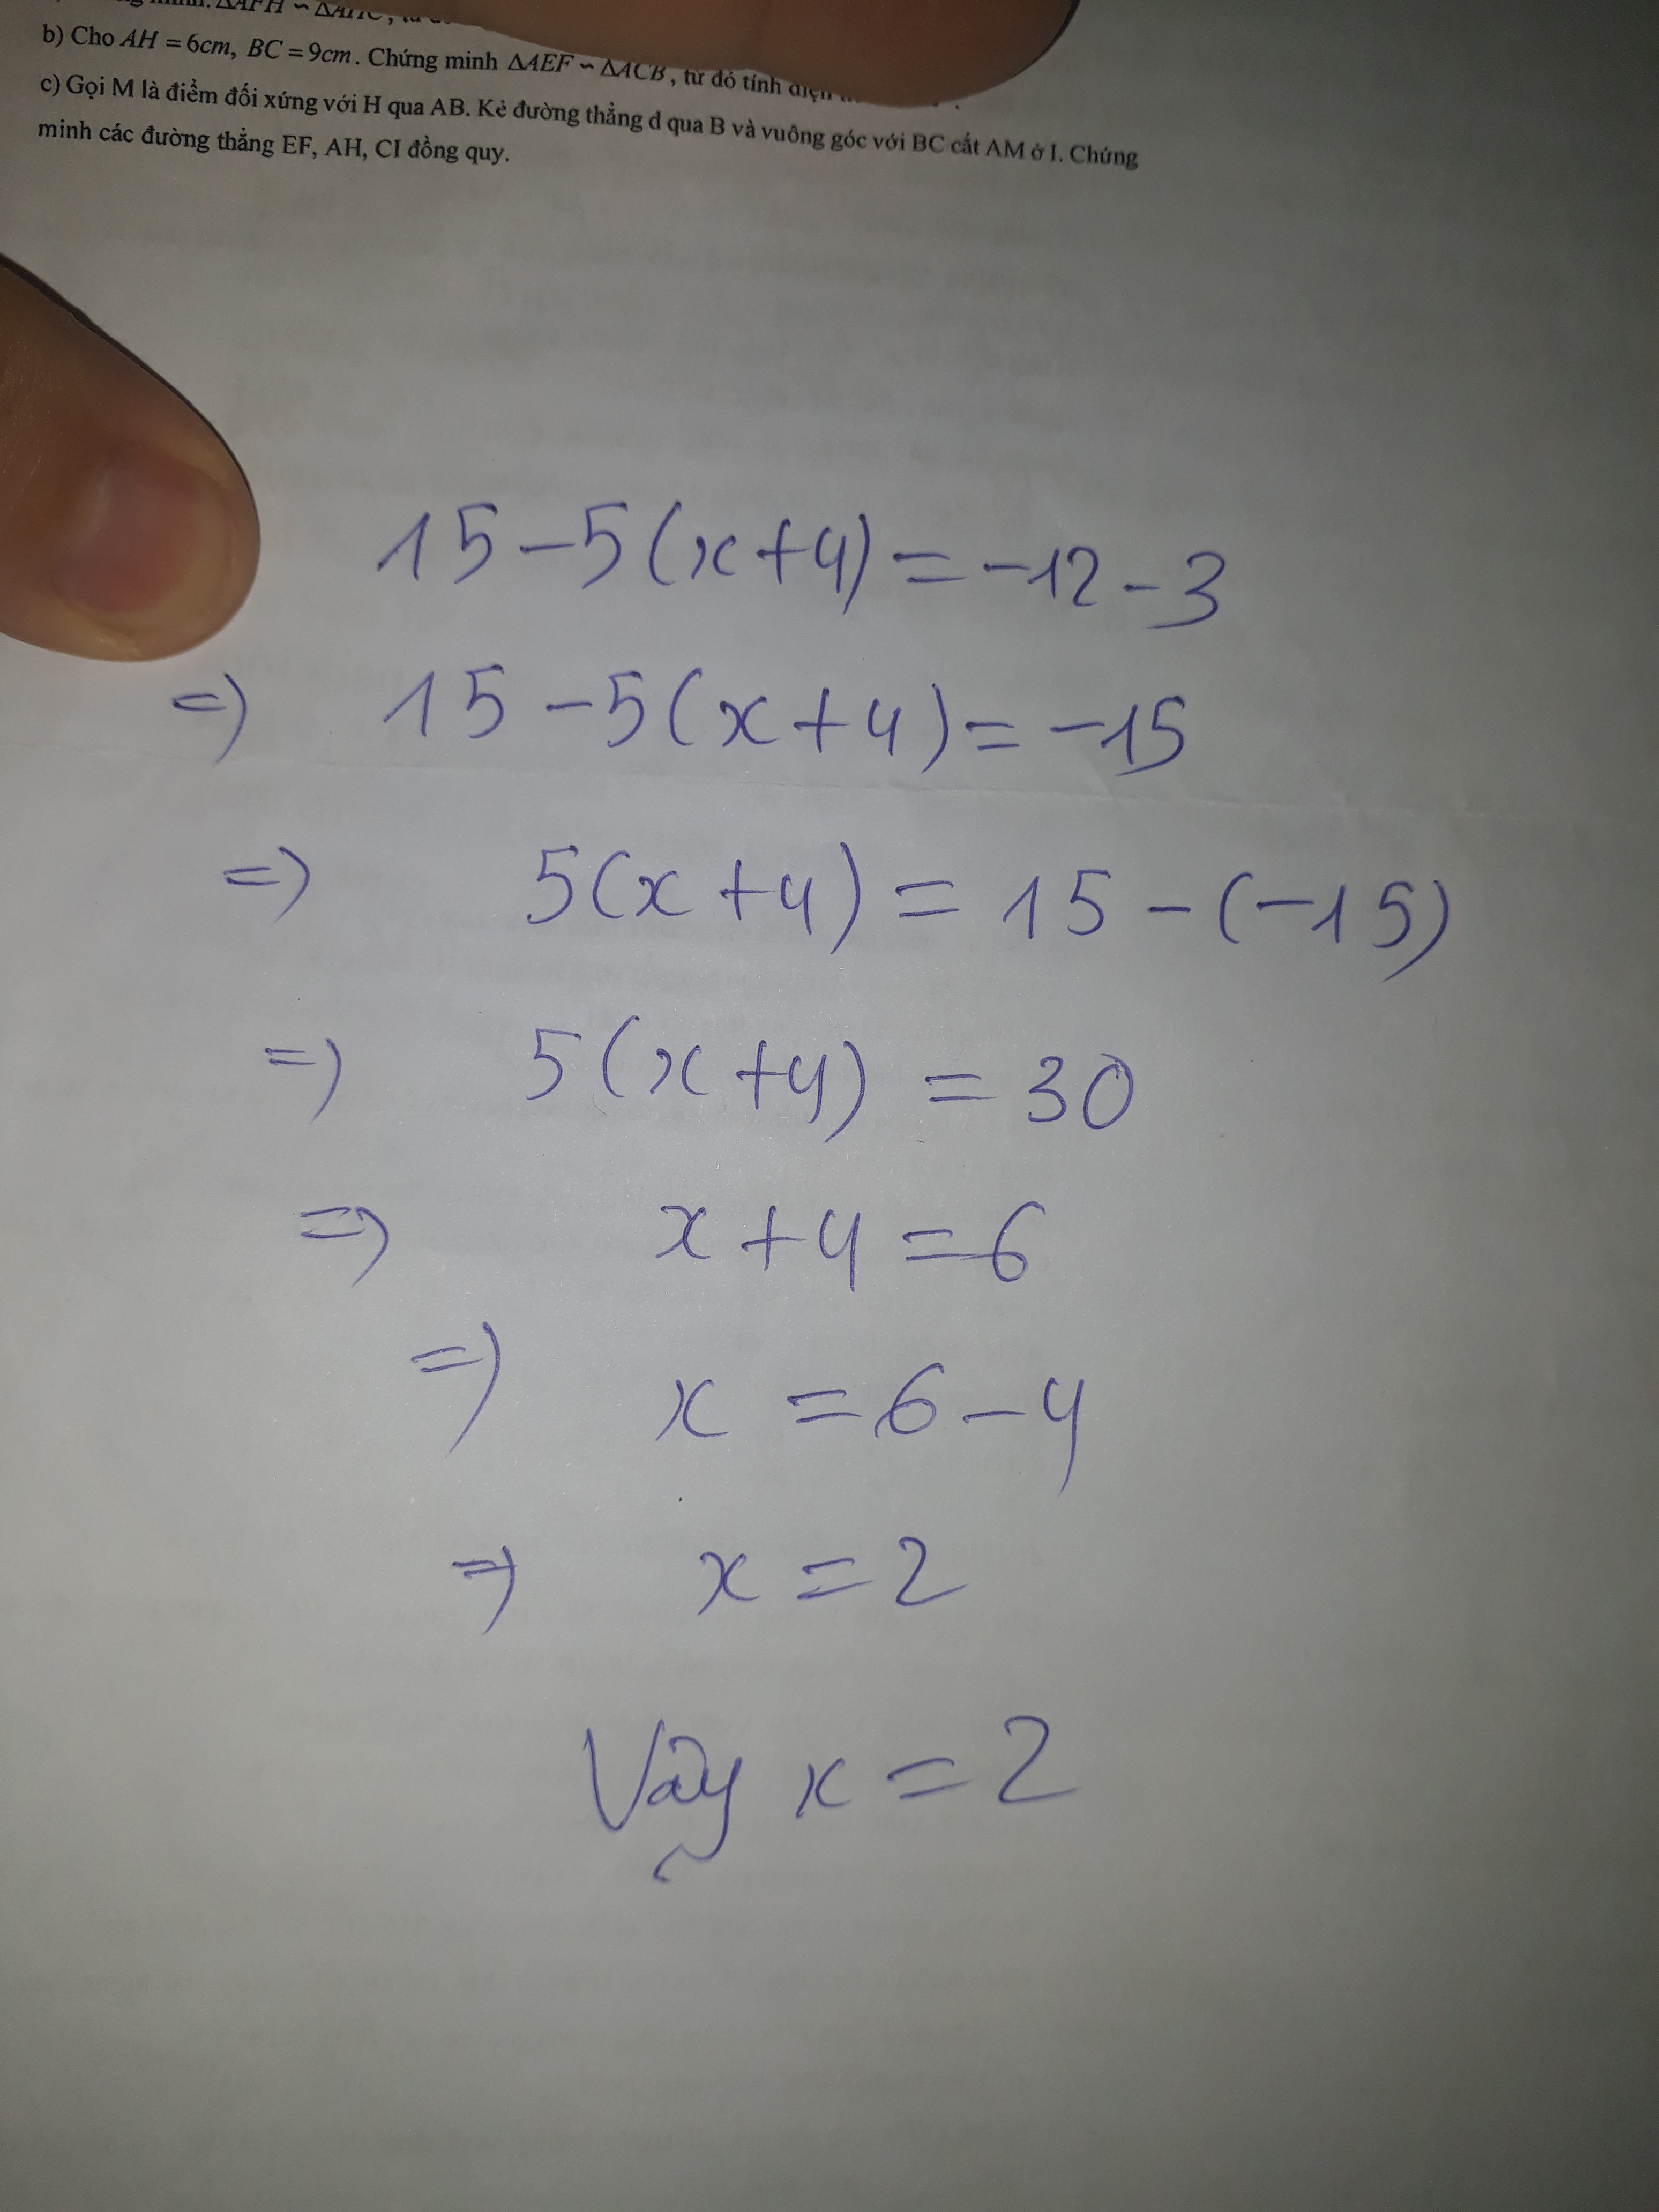 minh: ΔAFH ∽ ΔAHC,
b) Cho AH = 6cm, BC = 9cm. Chứng minh ΔAEF ∽ ΔACB, từ đó tính diện
c) Gọi M là điểm đối xứng với H qua AB. Kẻ đường thẳng d qua B và vuông góc với BC cắt AM ở I. Chứng
minh các đường thẳng EF, AH, CI đồng quy.
15 - 5(x + 4) = -12 - 3
=> 15 - 5(x + 4) = -15
=> 5(x + 4) = 15 - (-15)
=> 5(x + 4) = 30
=> x + 4 = 6
=> x = 6 - 4
=> x = 2
Vậy x = 2